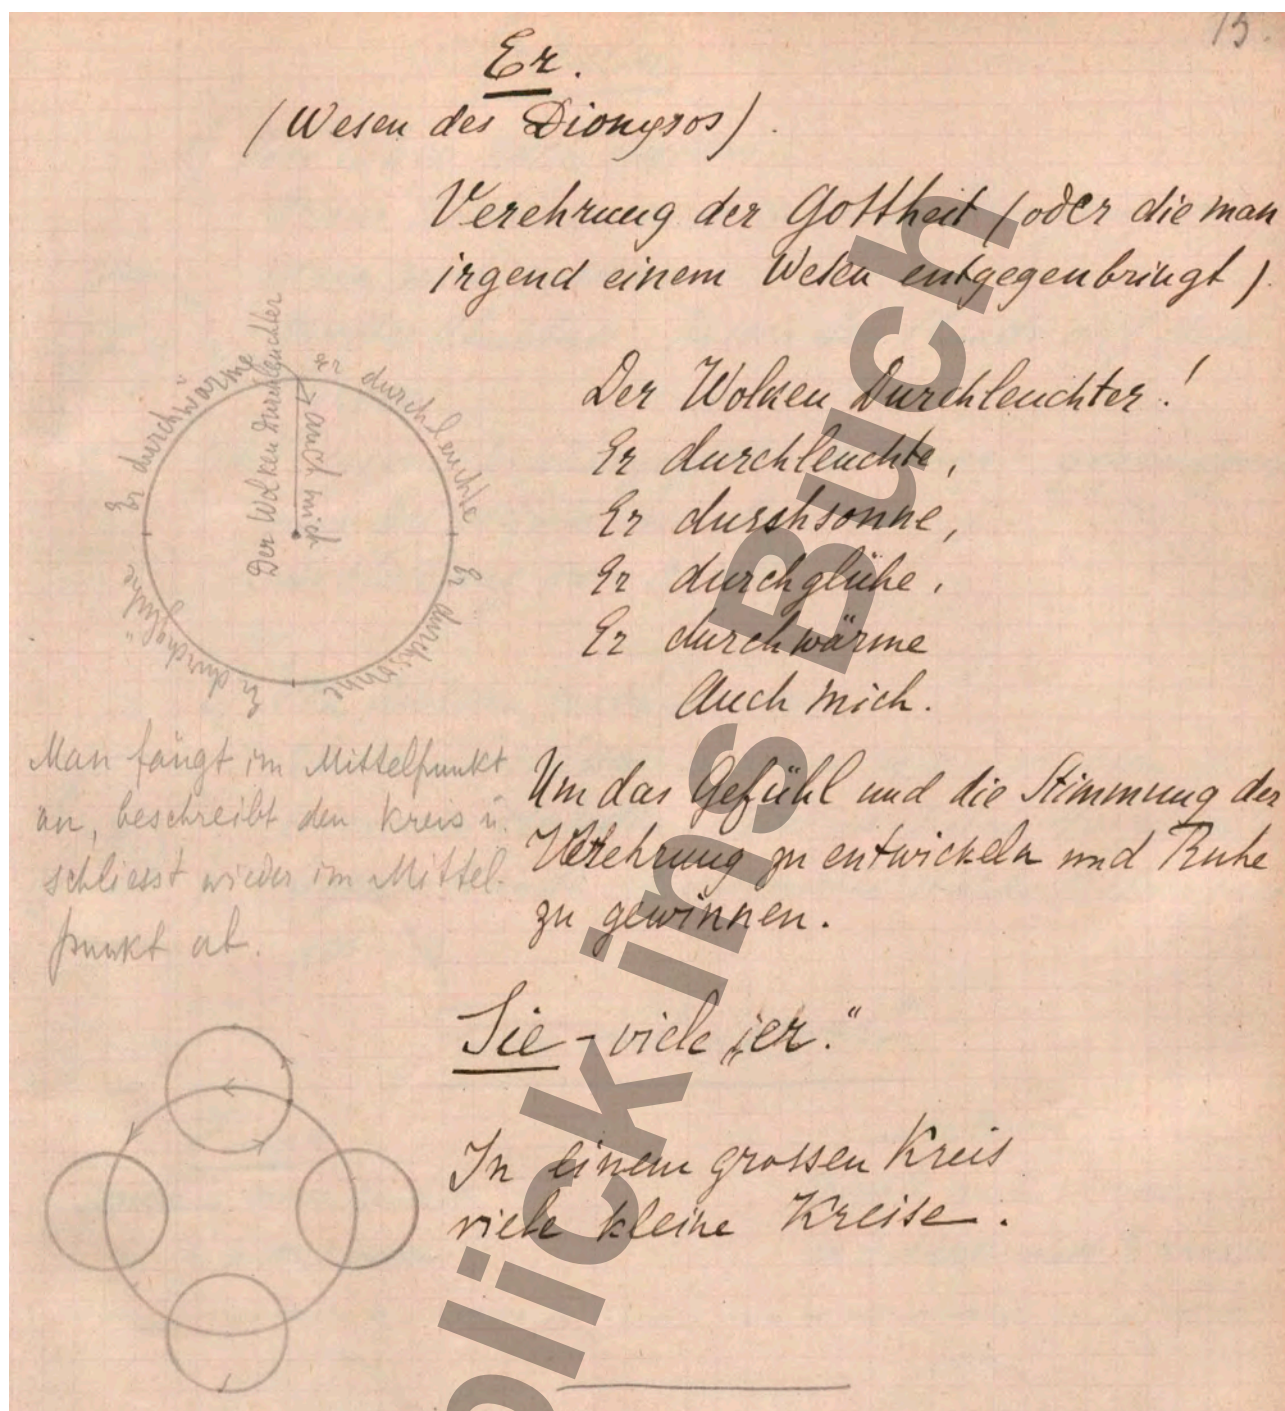 15.
Er.
(Wesen des Dionysos).
Verehrung der Gottheit (oder die man
irgend einem Wesen entgegenbringt).
Der Wolken Durchleuchter!
Er durchleuchte,
Er durchsonne,
Er durchglühe,
Er durchwärme
Auch mich.
Der Wolken Durchleuchter
er durchleuchte
Er durchsonne
Er durchglühe
Er durchwärme
auch mich
Man fängt im Mittelpunkt
an, beschreibt den Kreis u.
schliesst wieder im Mittel-
punkt ab.
Um das Gefühl und die Stimmung der
Verehrung zu entwickeln und Ruhe
zu gewinnen.
Sie - viele „er."
In einem grossen Kreis
viele kleine Kreise.
blick ins Buch